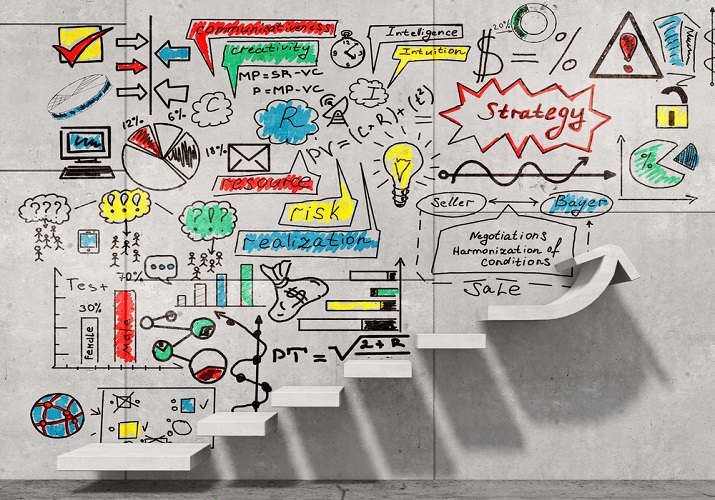 communicativeness
creactivity
Intelligence
Intuition
20%
$ = %
MP=SR-VC
P=MP-VC
C
I
R
Strategy
12%
6%
18%
resource
risk
realization
%
Seller
Bayer
Negotiations
Harmonization of
conditions
Sale
???
!!!
?!?
...
Test
70%
30%
Female
Male
$
PT=√2+R